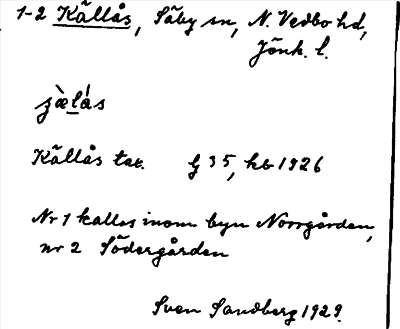 1-2 Källås, Säby sn, N. Vedbo hd,
Jönk. l.
Källås tax. G 35, hb 1926
Nr 1 kallas inom byn Norrgården,
nr 2 Södergården
Sven Sandberg 1929.